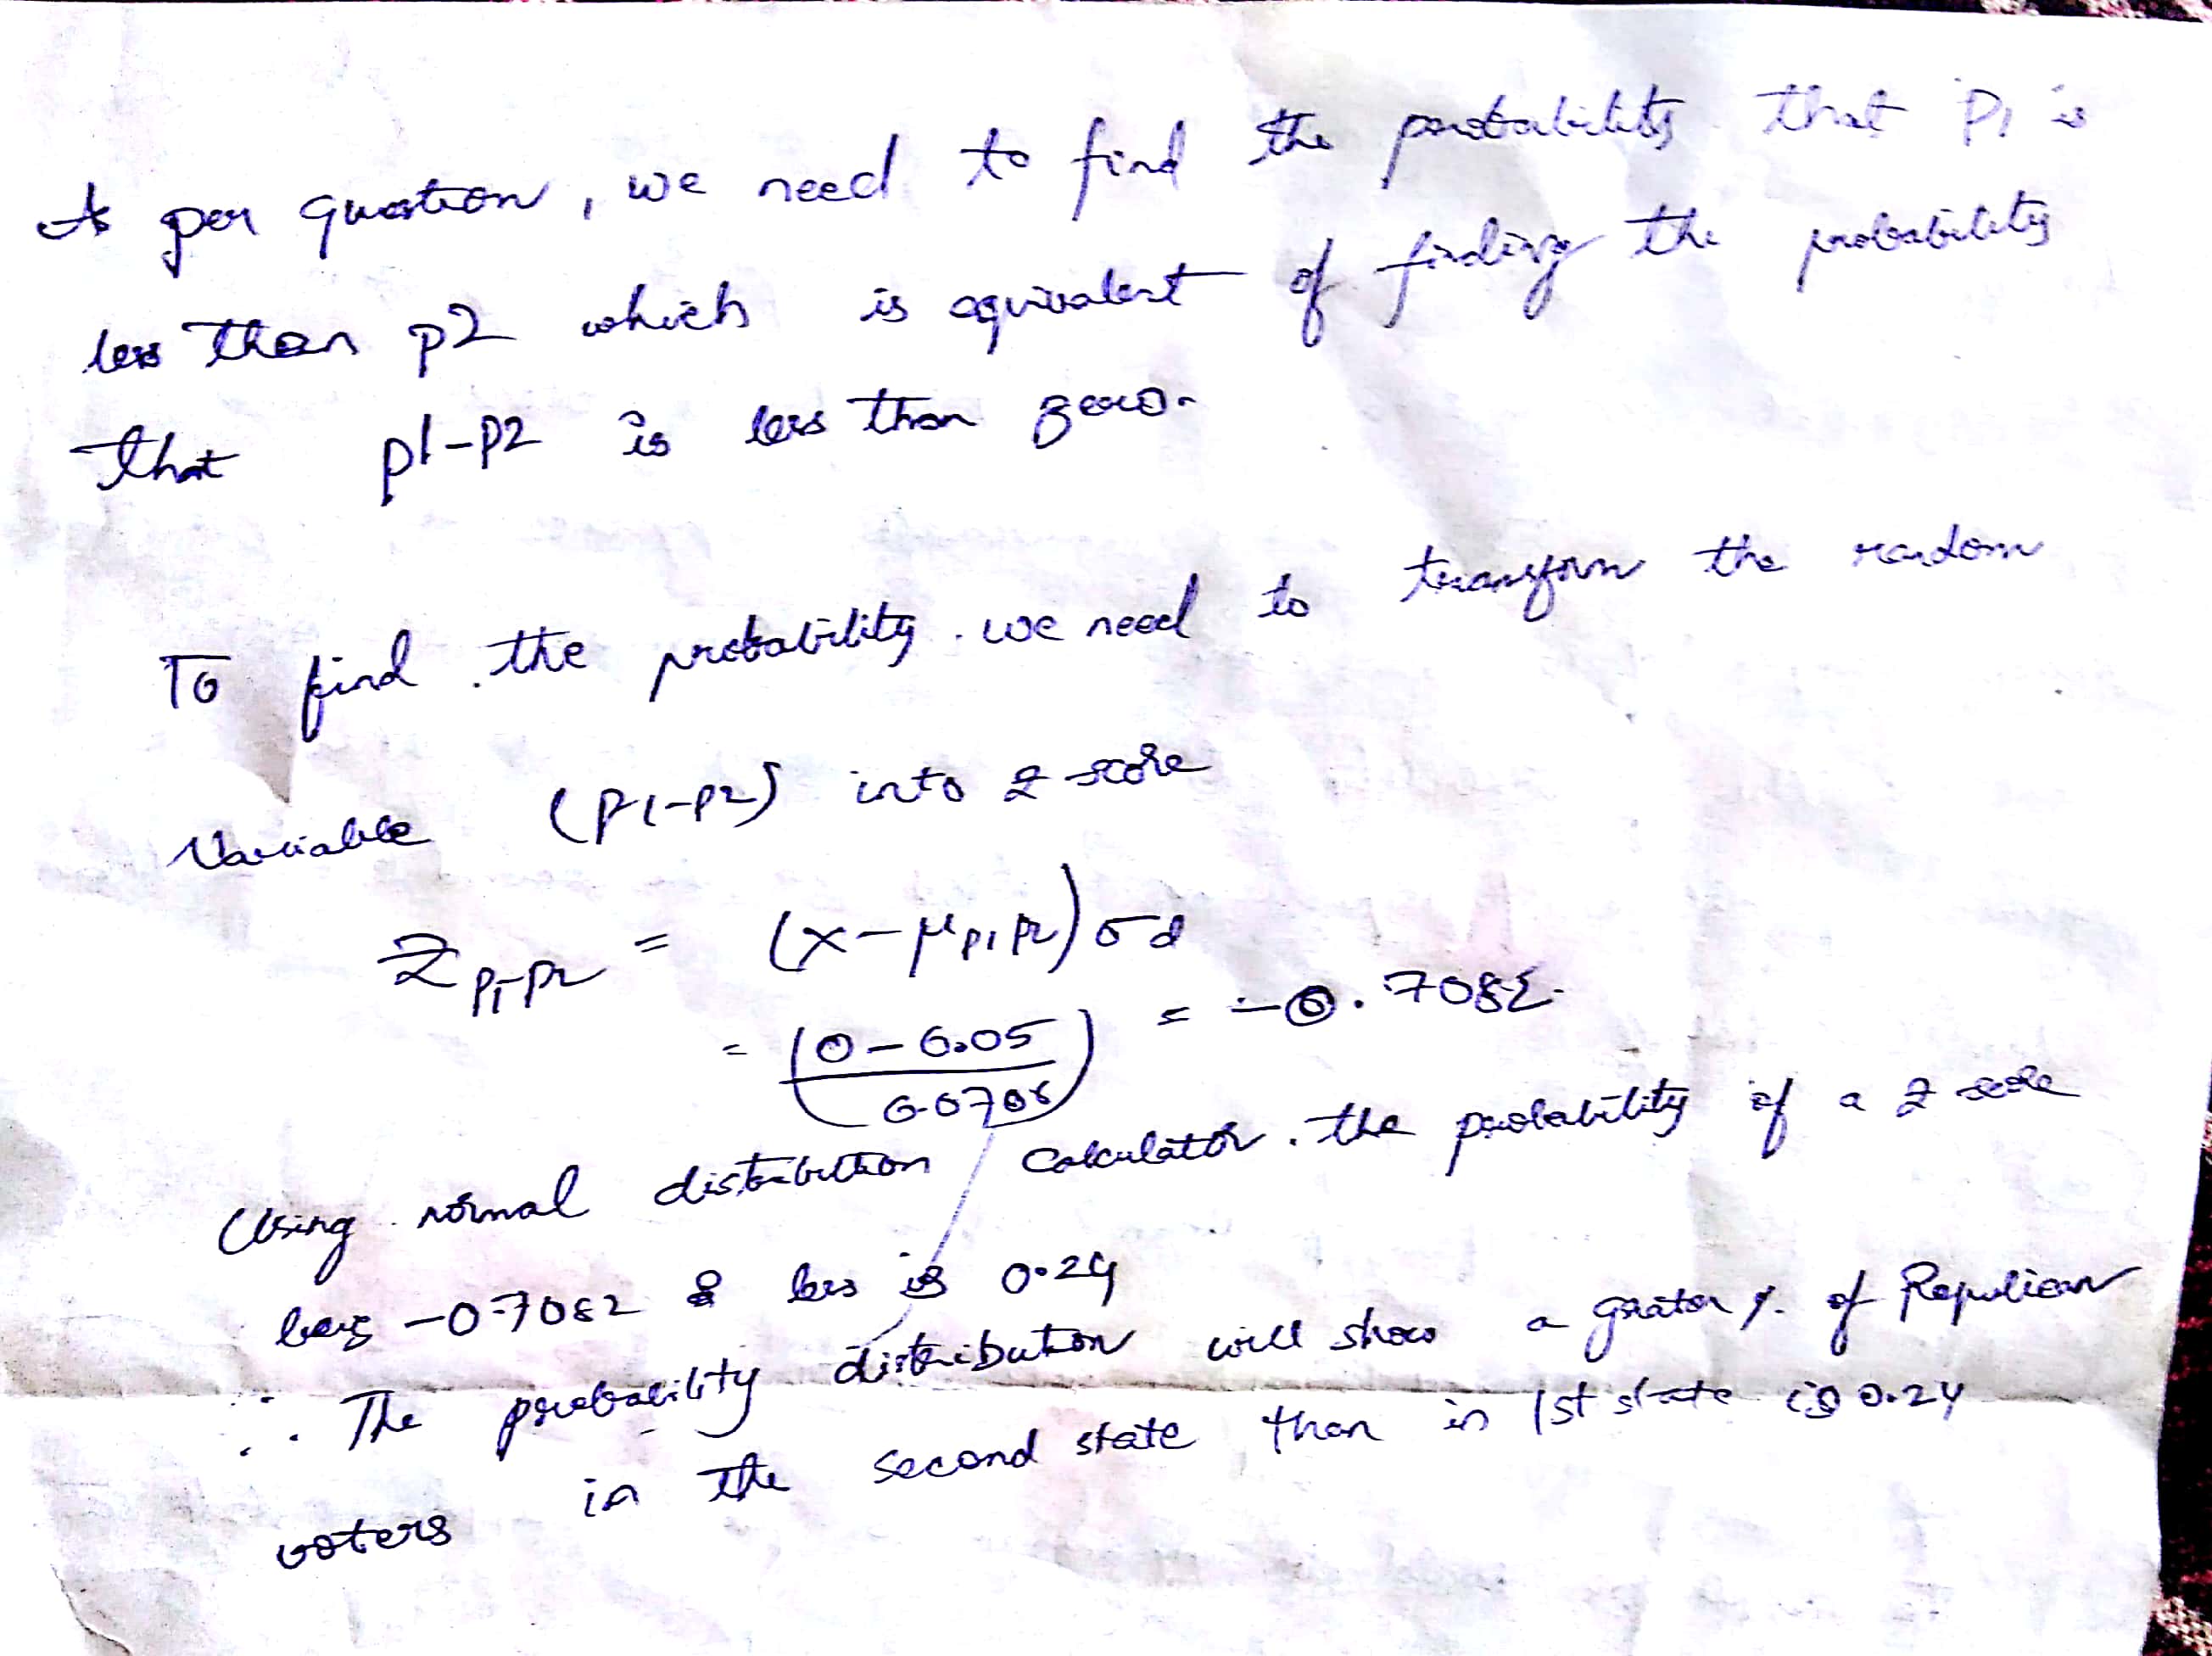 As per question, we need to find the probability that P1 is
less than p2 which is equivalent of finding the probability
that p1-p2 is less than zero.
To find the probability. we need to transform the random
Variable (P1-P2) into z score
Z P1-P2 = (x-μP1P2) σd
= (0-0.05 / 0.0706) = -0.7082
Using normal distribution calculator. the probability of a z score
being -0.7082 & less is 0.24
∴ The probability distribution will show a greater %. of Repulican
voters in the second state than in 1st state is 0.24